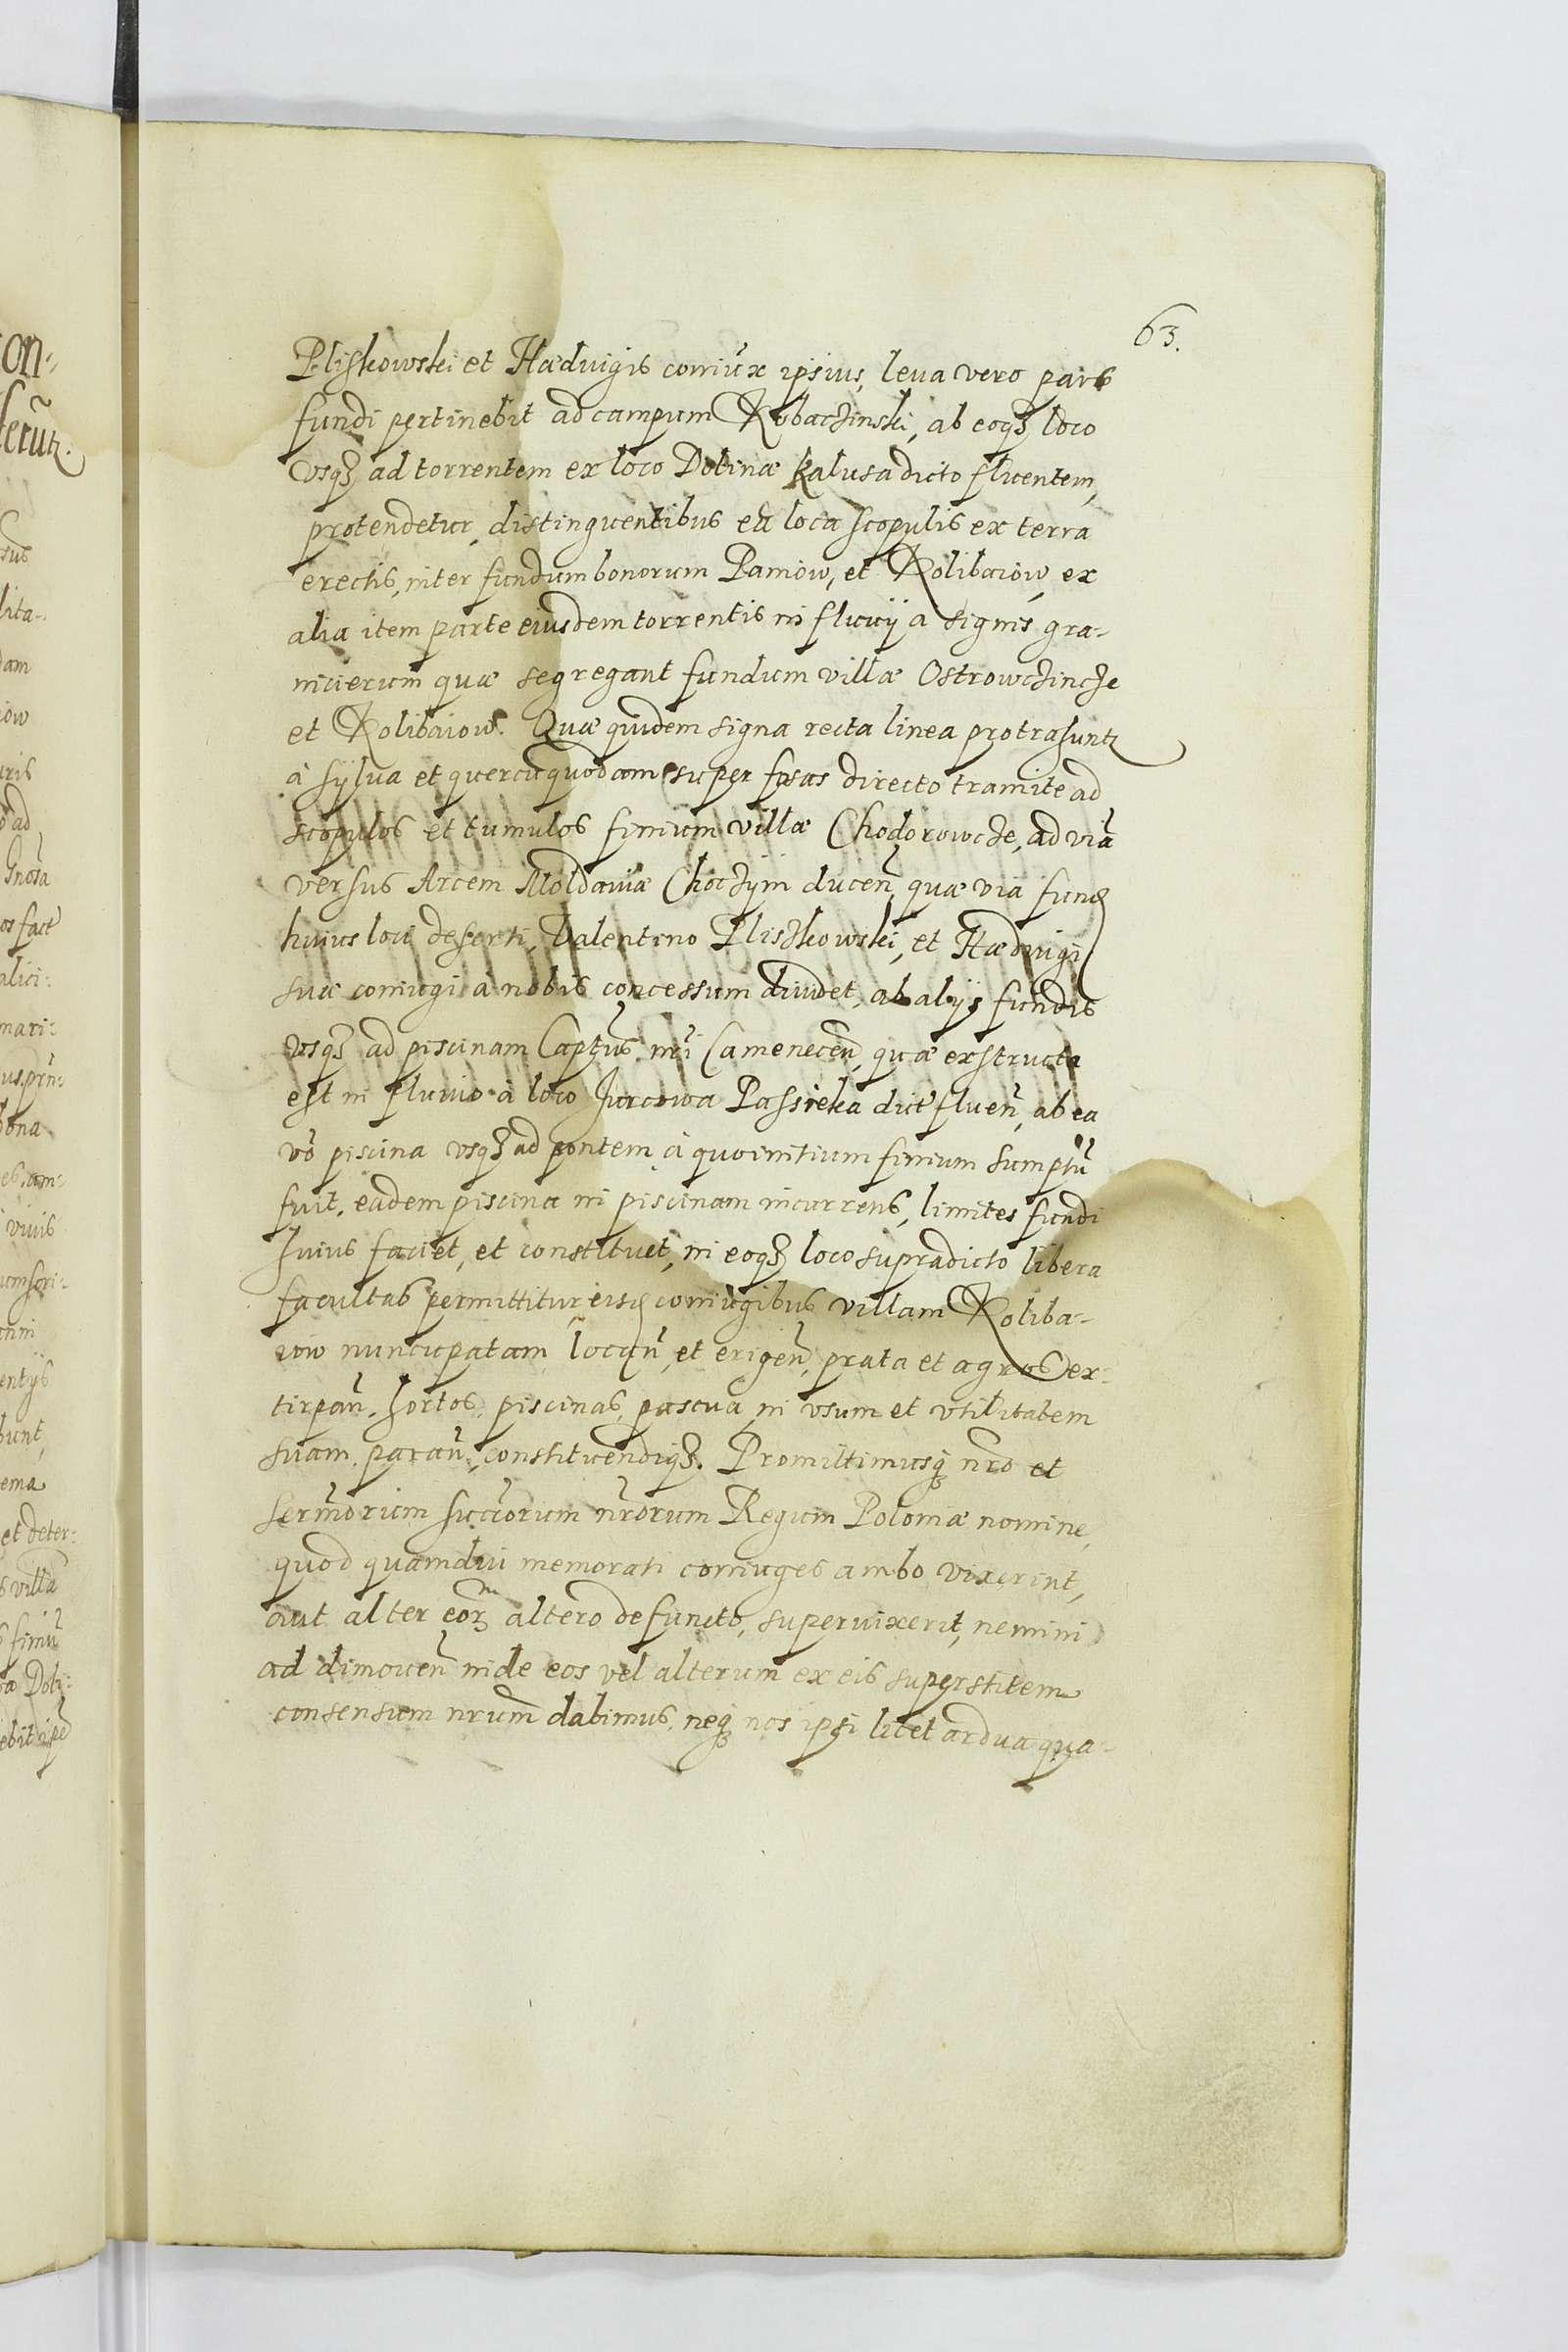 63.
Pliskowski et Hædvigis coniux ipsius, leva vero pars
fundi pertinebit ad campum Kobaczinski, ab eoqȝ loco
vsqȝ ad torrentem ex loco Dolinæ Kalusa dicto fluentem,
protendetur, distinguentibus ea loca scopulis ex terra
erectis, inter fundum bonorum Paniow, et Kolibaiow, ex
alia item parte eiusdem torrentis in fluuij a signis gra-
nicierum quæ segregant fundum villæ Ostrowczincze
et Kolibaiow. Quæ quidem signa recta linea protrasuntz
à sylua et quercu quodam super fosas directo tramite ad
scopulos et tumulos finium villæ Chodorowcze, ad viã
versus Arcem Moldaviæ Choczym ducen̄, quæ via fund
huius loci deserti, Valentino Pliszkowski, et Hædvigi
suæ coniugi à nobis concessum diuidet, ab alijs fundis
vsqȝ ad piscinam Captūs nr̄i Camenecen̄, quæ exstructa
est in fluvio à loco Jurcowa Passieka dict fluen̄, ab ea
vō piscina vsqȝ ad pontem à quo initium finium sumptū
fuit, eadem piscina in piscinam incurrens, limites fundi
huius faciet, et constituet, in eoqȝ loco supradicto libera
facultas permittitur eisd coniugibus villam Koliba-
iow nuncupatam locan̄, et erigen̄, prata et agros ex-
tirpan̄, hortos, piscinas, pascua, in vsum et vtilitatem
suam paran̄, constituendiqȝ. Promittimusqȝ nr̄o et
Serm̄orum succ̄orum nr̄orum Regum Poloniæ nomine,
quod quamdiu memorati coniuges ambo vixerint,
aut alter eorȝ altero defuncto, supervixerit, nemini
ad dimouen̄ inde eos vel alterum ex eis superstitem
consensum nr̄um dabimus, neqȝ nos ipsi licet ardua qua-